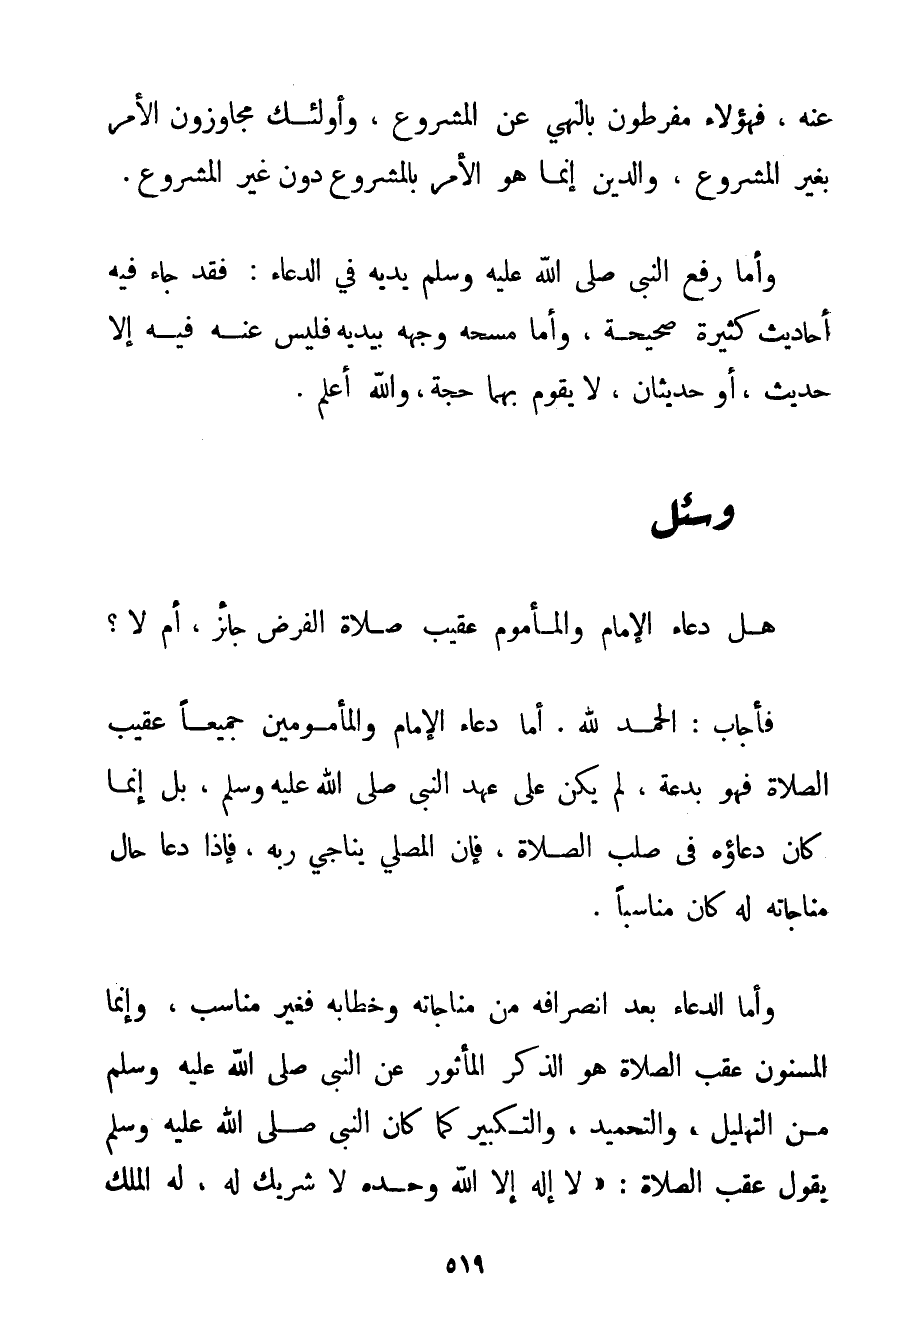 عنه ، فهؤلاء مفرطون بالنهي عن المشروع ، وأولئك مجاوزون الأمر
بغير المشروع ، والدين إنما هو الأمر بالمشروع دون غير المشروع .
وأما رفع النبى صلى الله عليه وسلم يديه في الدعاء : فقد جاء فيه
أحاديث كثيرة صحيحة ، وأما مسحه وجهه بيديه فليس عنه فيه إلا
حديث ، أو حديثان ، لا يقوم بهما حجة ، والله أعلم .
وسئل
هل دعاء الإمام والمأموم عقيب صلاة الفرض جائز ، أم لا ؟
فأجاب : الحمد لله . أما دعاء الإمام والمأمومين جميعاً عقيب
الصلاة فهو بدعة ، لم يكن على عهد النبى صلى الله عليه وسلم ، بل إنما
كان دعاؤه فى صلب الصلاة ، فإن المصلي يناجي ربه ، فإذا دعا حال
مناجاته له كان مناسباً .
وأما الدعاء بعد انصرافه من مناجاته وخطابه فغير مناسب ، وإنما
المسنون عقب الصلاة هو الذكر المأثور عن النبى صلى الله عليه وسلم
من التهليل ، والتحميد ، والتكبير كما كان النبى صلى الله عليه وسلم
يقول عقب الصلاة : « لا إله إلا الله وحده لا شريك له ، له الملك
٥١٩